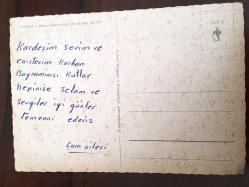 Kardeşim sevim ve
enistecim Kurban
Bayramınızı Kutlar
hepinize selam ve
sevgiler iyi günler
temenni ederiz
Çam ailesi